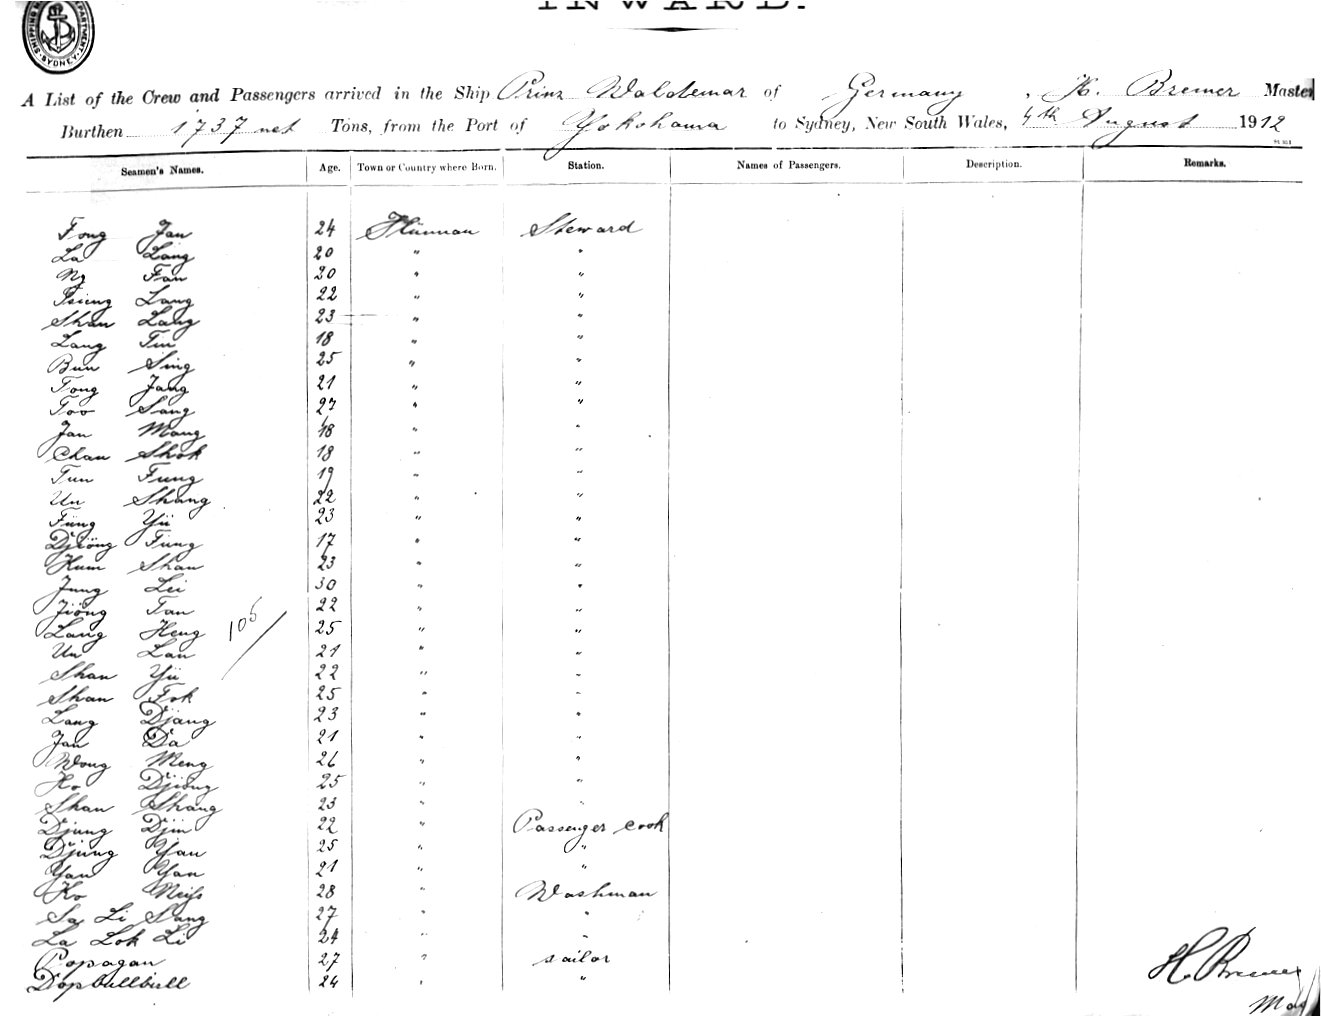 INWARD.
SHIPPING DEPARTMENT. SYDNEY
A List of the Crew and Passengers arrived in the Ship Prinz Waldemar of Germany, H. Bremer Master
Burthen 1737 net Tons, from the Port of Yokohama to Sydney, New South Wales, 4th August 1912
Seamen's Names. Age. Town or Country where Born. Station. Names of Passengers. Description. Remarks.
Fong Jan 24 Steward
La Lang 20 " "
Ng Fan 20 " "
Tsieng Lang 22 " "
Shan Lang 23 " "
Lang Tin 18 " "
Bun Sing 25 " "
Tong Jang 21 " "
Too Sang 27 " "
Jan Mang 18 " "
Chan Shok 18 " "
Tun Fung 19 " "
Un Shang 22 " "
Füng Yü 23 " "
Djeöng Fung 17 " "
Kum Shan 23 " "
Jung Lei 30 " "
Jiöng Tan 22 " "
Lang Heng 25 " "
105
Un Lan 21 " "
Shan Yü 22 " "
Shan Fok 25 " "
Lang Djang 23 " "
Jan Da 21 " "
Wong Meng 26 " "
Ho Djiöng 25 " "
Shan Shang 23 " "
Djung Djin 22 " Passenger cook
Djung Yan 25 " "
Yan Yan 21 " "
Ho 28 " Washman
Sa Li Sang 27 " "
La Lok Li 24 " "
Popagan 27 " sailor
Dopbullbull 24 " "
H. Bremer
Mas